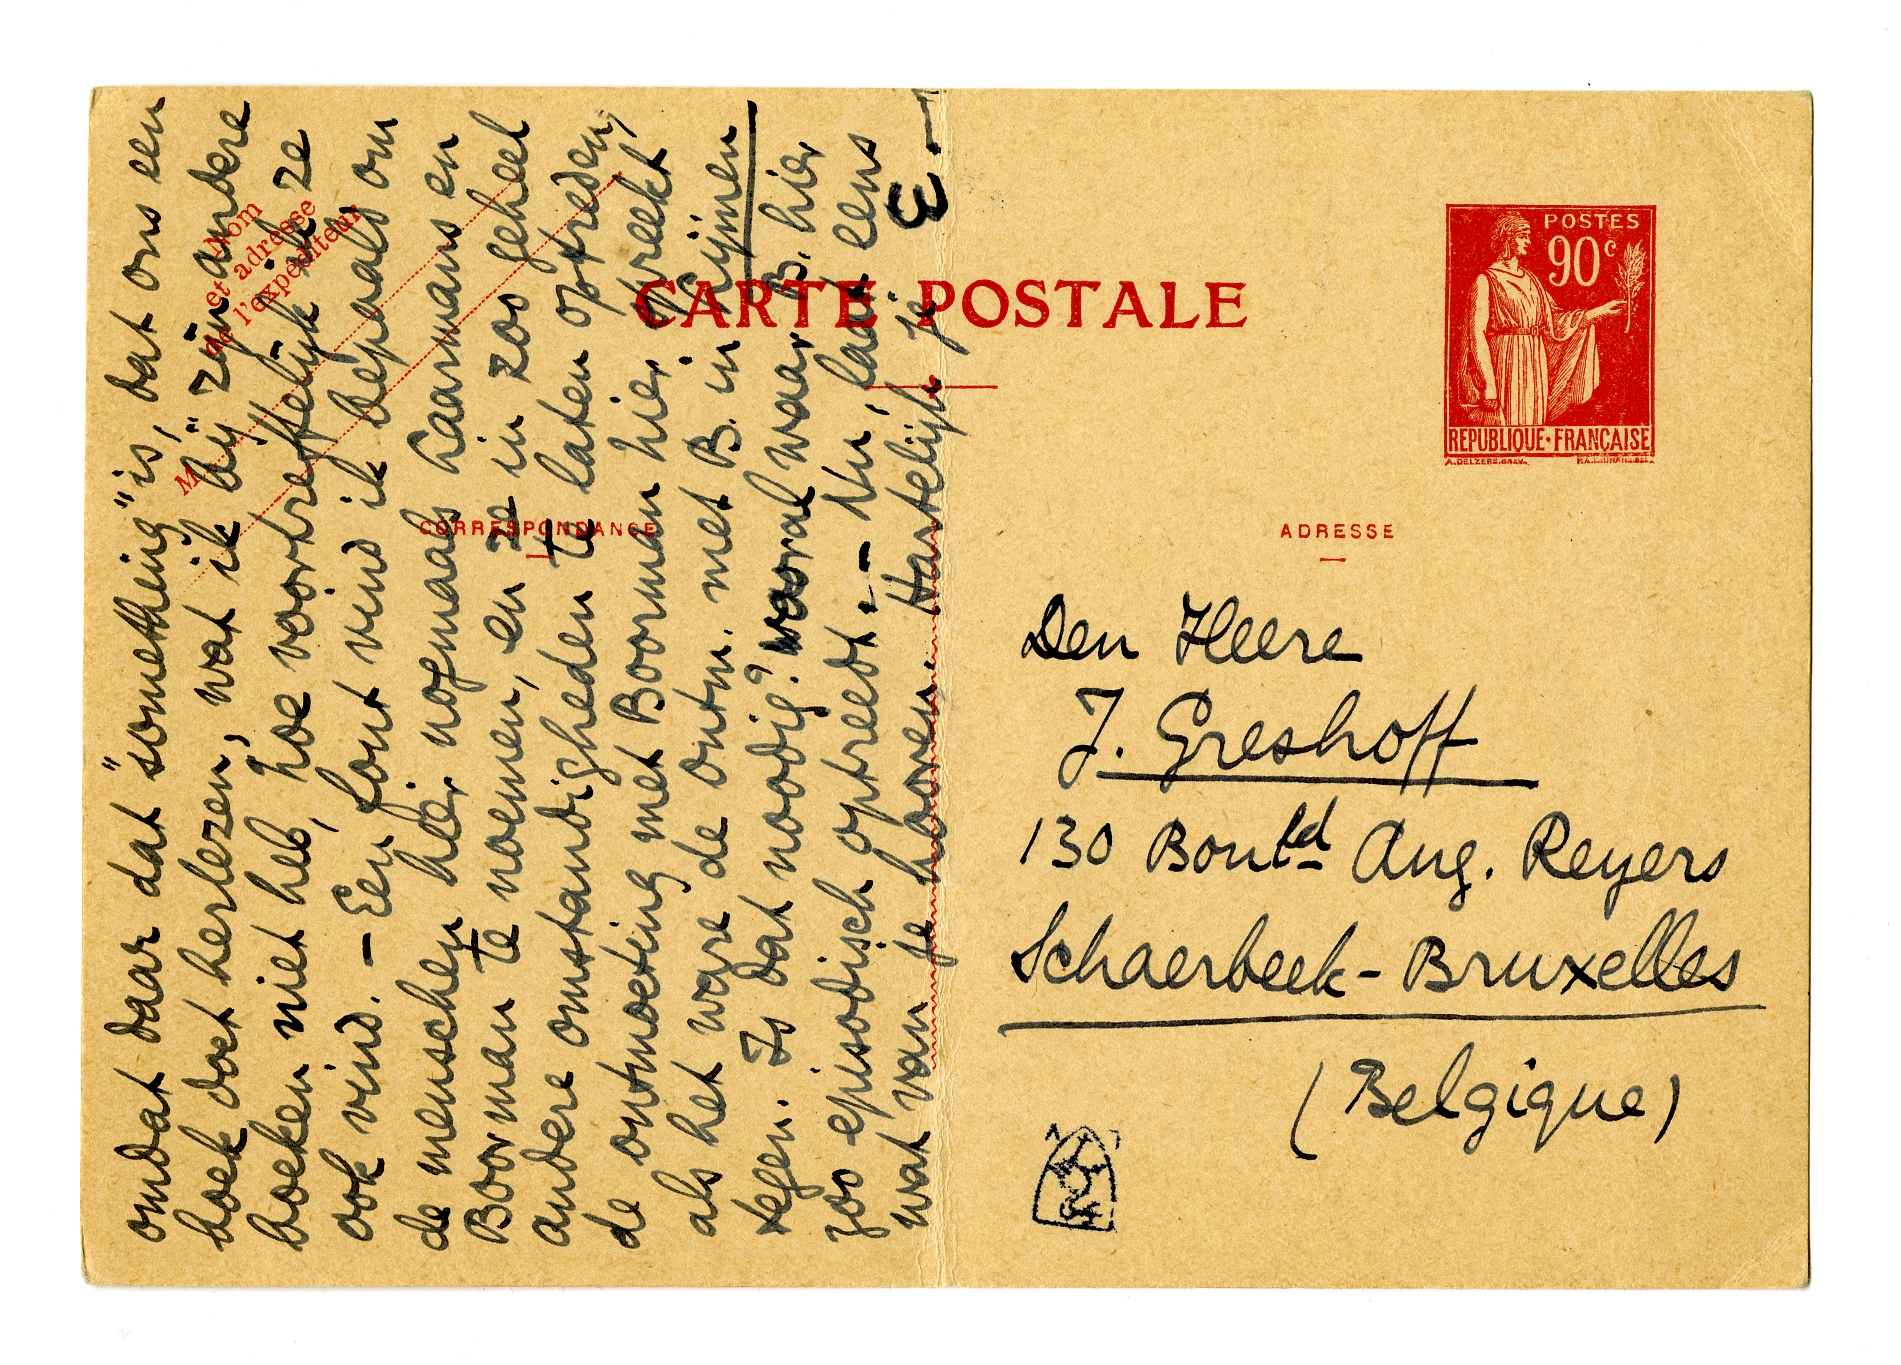 omdat daar dat "something" is, dat ons een
boek doet herlezen, wat ik bij zijn andere
boeken niet heb, hoe voortreffelijk ik ze
ook vind. — Een fout vind ik bepaald om
de menschen hier nogmaals Laarmans en
Boorman te noemen, en ze in zoo geheel
andere omstandigheden te laten optreden,
de ontmoeting met Boorman hier spreekt
als het ware de ontm. met B. in Lijmen
tegen. Is dat noodig? vooral waar B. hier
zoo episodisch optreedt. — Nu, laat eens
wat van je hooren. Hartelijk je
E.
Nom
et adresse
de l'expéditeur
M
CARTE POSTALE
CORRESPONDANCE
ADRESSE
POSTES
90c
REPUBLIQUE·FRANÇAISE
A.DELZERS.GRAV.
Den Heere
J. Greshoff
130 Boulld Aug. Reyers
Schaerbeek - Bruxelles
(Belgique)